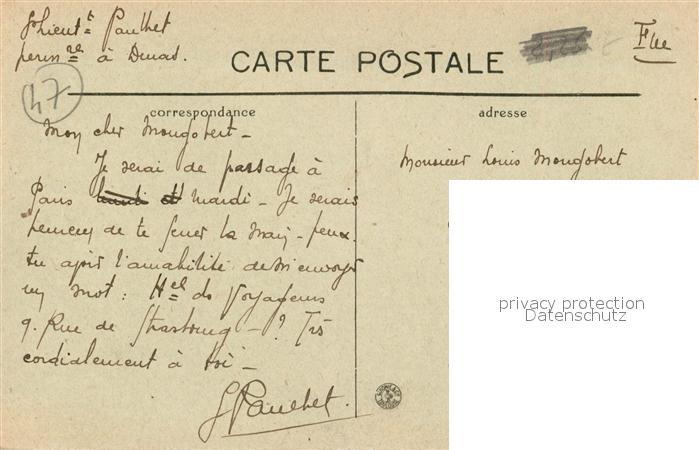 S/Lieut.t Pauthet
perm re à Dinas.
CARTE POSTALE
Fue
47
correspondance
adresse
Mon cher Mongobert -
Je serai de passage à
Paris lundi et mardi - Je serais
heureux de te serrer la main - peux
tu avoir l'amabilité de m'envoyer
un mot : Hel des Voyageurs
9. Rue de Strasbourg - ? Très
cordialement à toi -
Pauthet.
Monsieur Louis Mongobert
privacy protection
Datenschutz